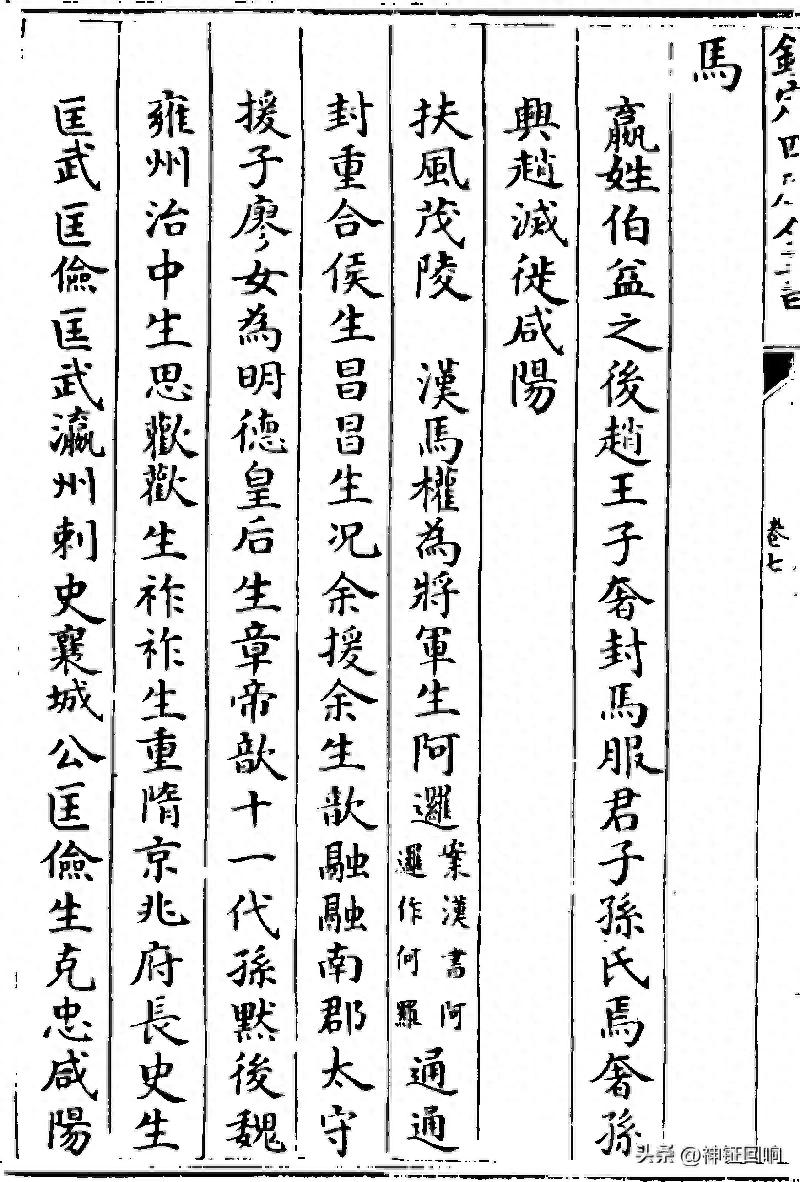 欽定四庫全書
卷七
馬
嬴姓伯益之後趙王子奢封馬服君子孫氏焉奢孫
興趙滅徙咸陽
扶風茂陵　漢馬權為將軍生阿邏案漢書阿邏作何羅通通
封重合侯生昌昌生况余援余生歆融融南郡太守
援子廖女為明德皇后生章帝歆十一代孫黙後魏
雍州治中生思歡歡生祚祚生重隋京兆府長史生
匡武匡儉匡武瀛州刺史襄城公匡儉生克忠咸陽
头条 @神钲回响